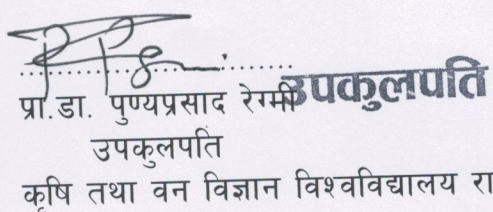 प्रा.डा. पुण्यप्रसाद रेग्मी उपकुलपति
उपकुलपति
कृषि तथा वन विज्ञान विश्वविद्यालय रा